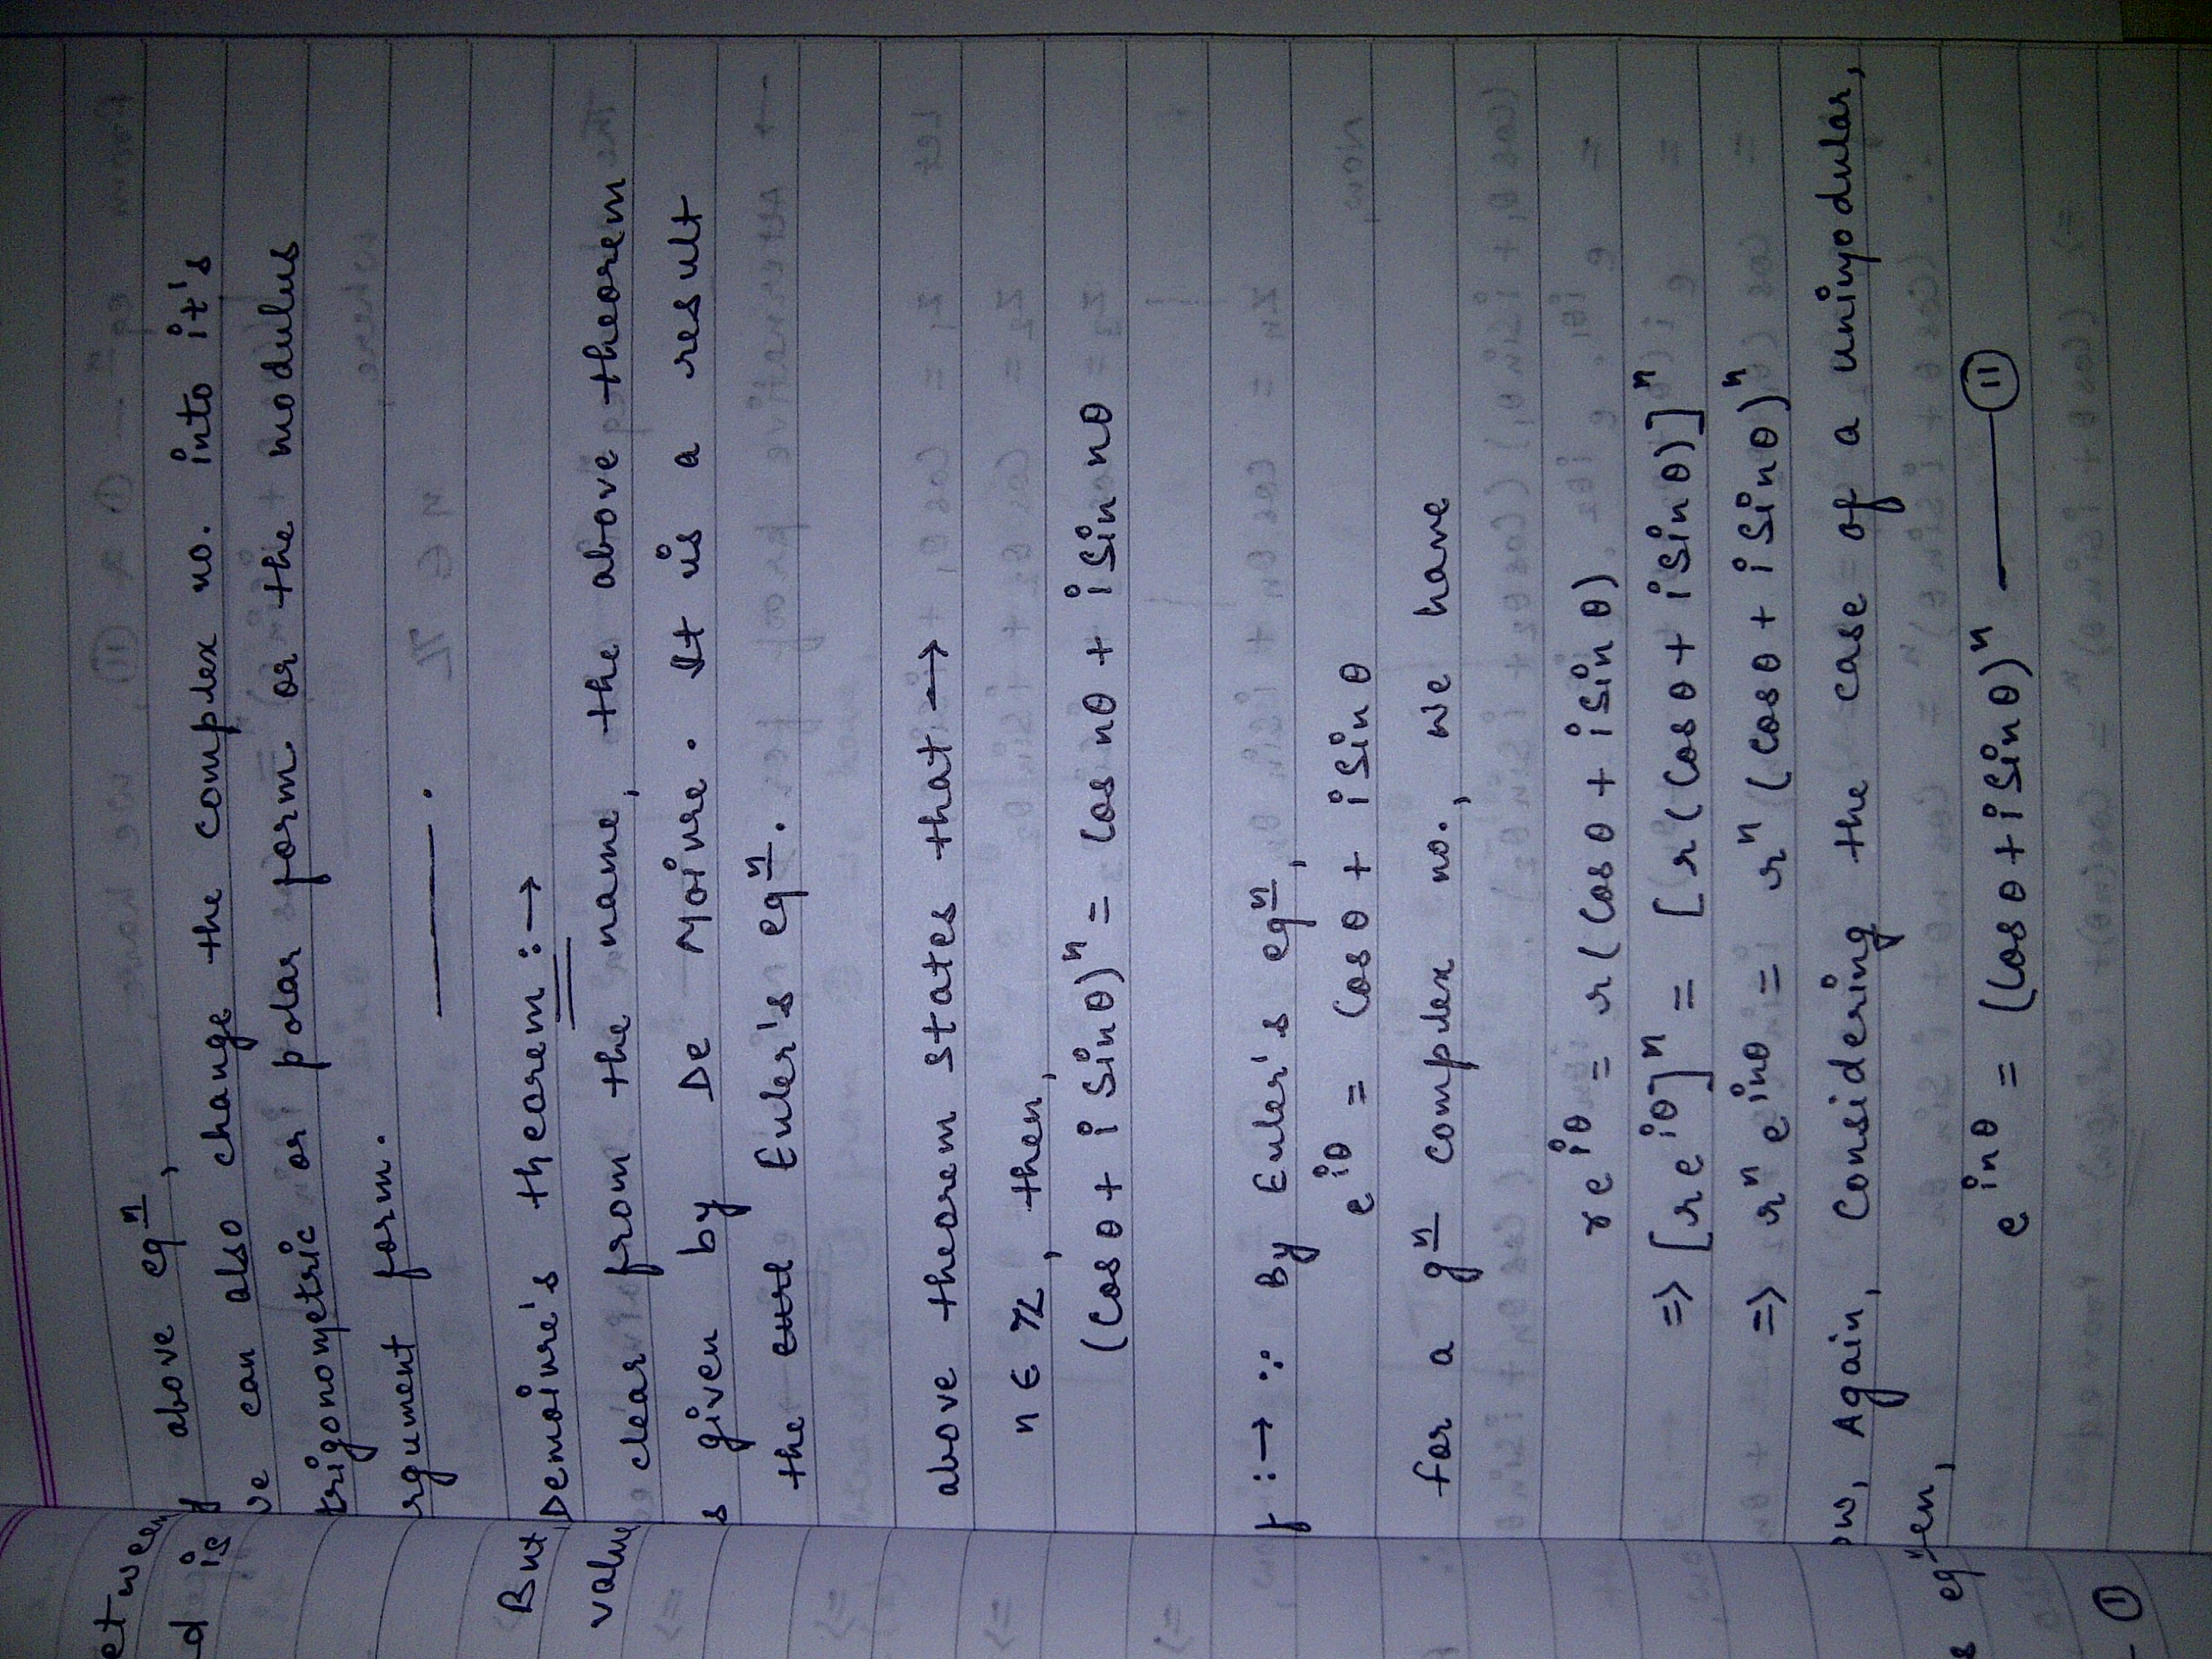 etween
d is
But
value
s eqⁿ
- ①
above eqⁿ,
ve can also change the complex no. into it's
trigonometric or polar form or the modulus
rgument form.
Demoivre's theorem :→
clear from the name, the above theorem
s given by De Moivre. It is a result
the Euler's eqⁿ.
above theorem states that →
n ∈ ℤ, then,
(Cosθ + i Sinθ)ⁿ = Cos nθ + i Sin nθ
f :→ ∵ By Euler's eqⁿ,
e^{iθ} = Cosθ + i Sinθ
for a gⁿ complex no., we have
re^{iθ} = r(Cosθ + i Sinθ)
=> [re^{iθ}]ⁿ = [r(Cosθ + i Sinθ)]ⁿ
=> rⁿ e^{inθ} = rⁿ (Cosθ + i Sinθ)ⁿ
ow, Again, Considering the case of a unimodular,
en,
e^{inθ} = (Cosθ + i Sinθ)ⁿ —— ⑪